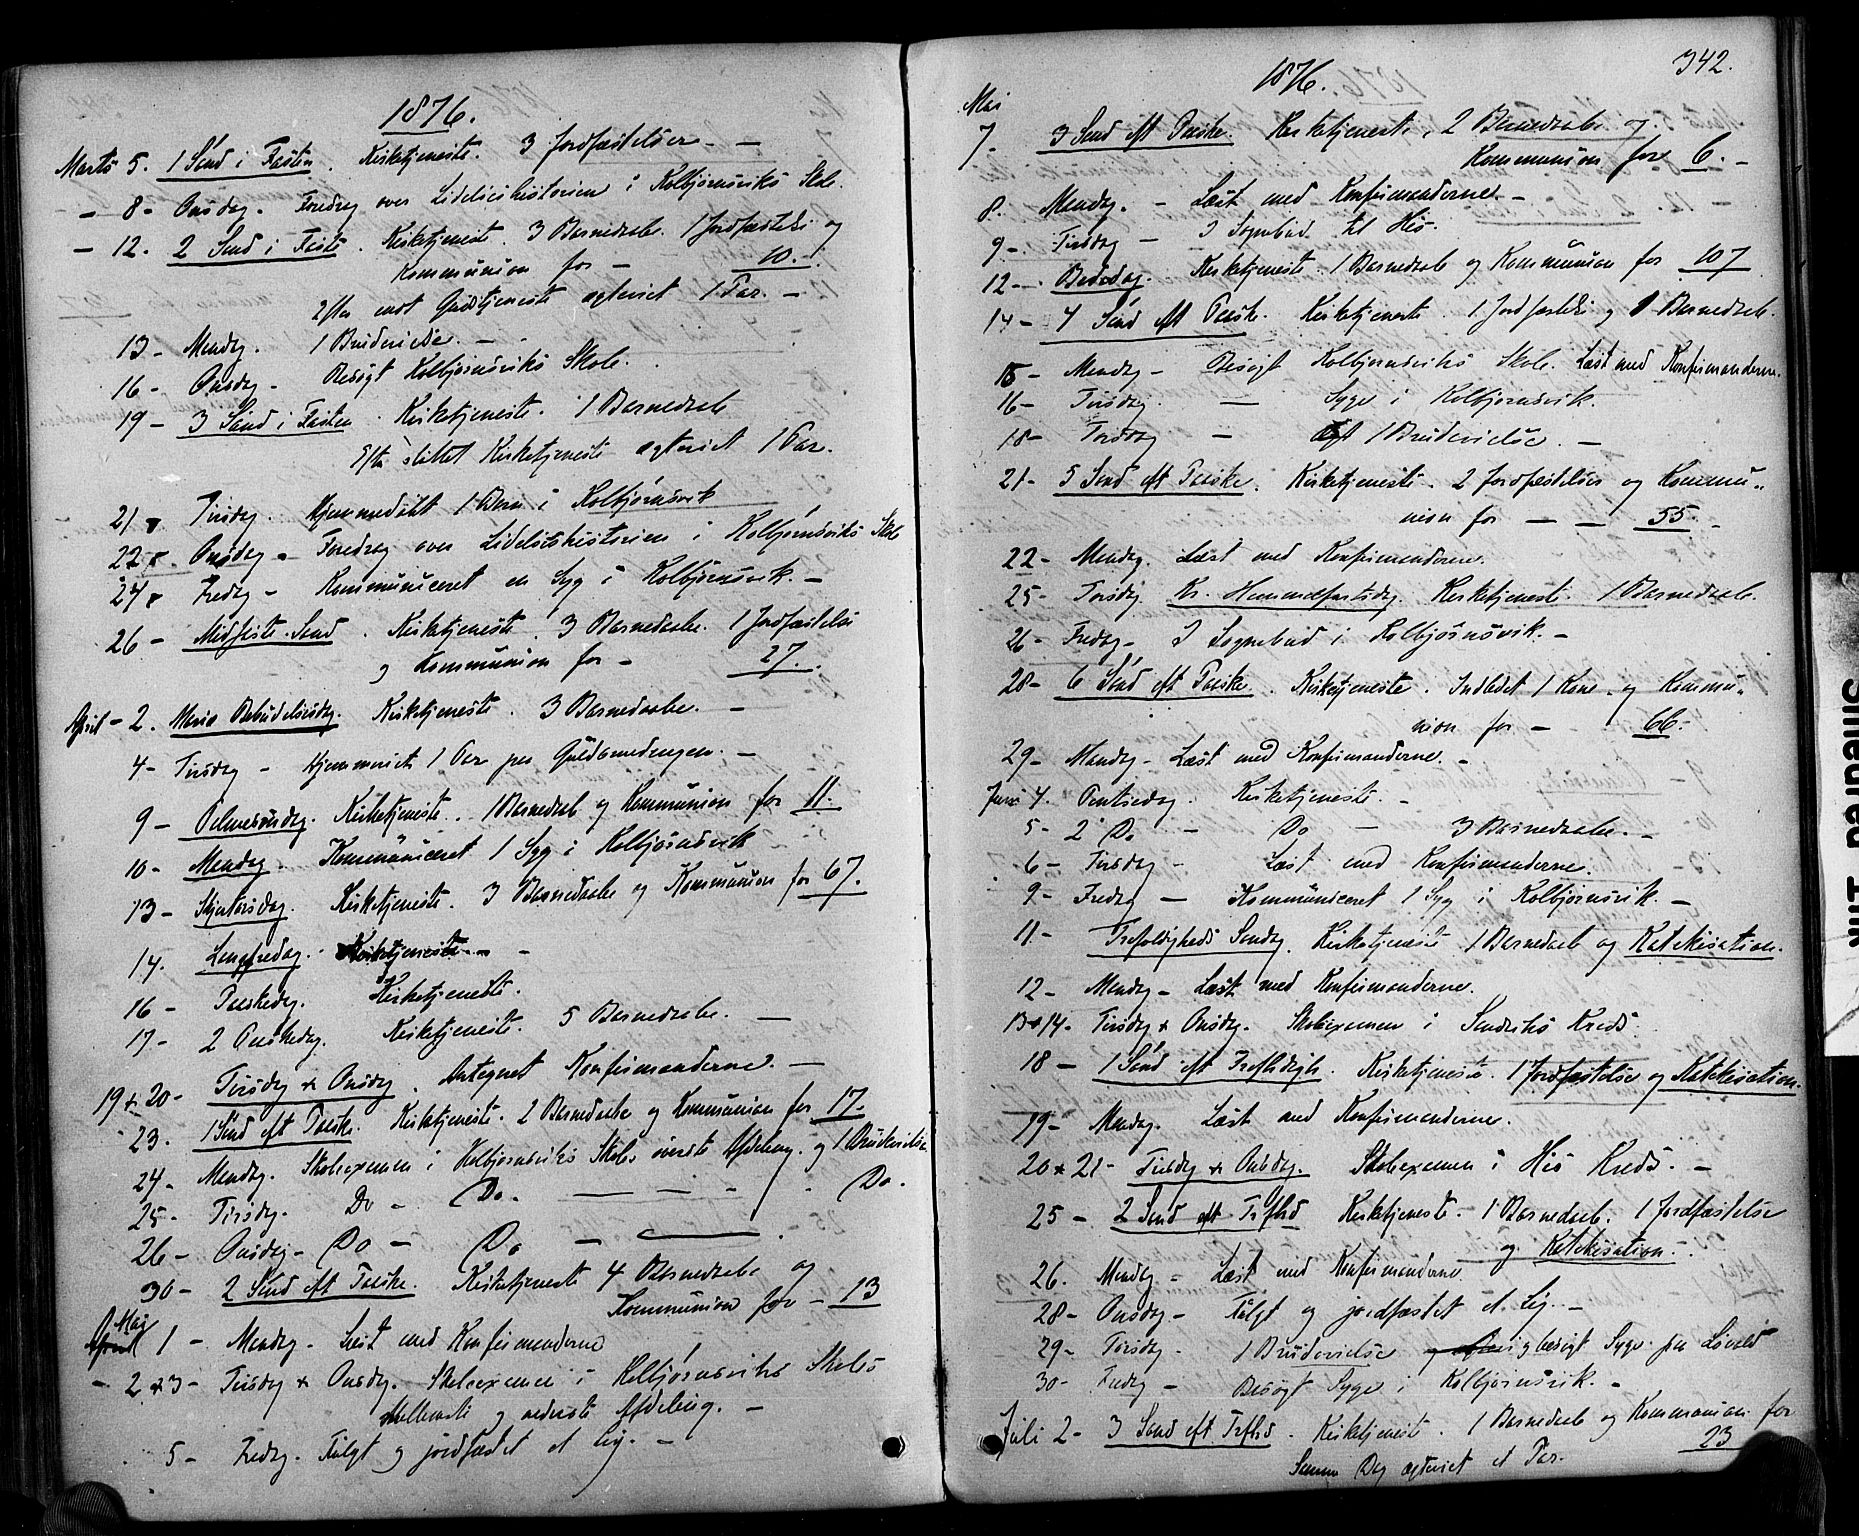 1876.
Marts 5. 1 Sönd i Fasten. Kirketjeneste. 3 Jordfæstelser. —
— 8 — Onsdag. Foredrag over Lidelseshistorien i Kolbjørnsviks Skole.
— 12. 2 Sönd i Faste. Kirketjeneste. 3 Barnedaabe. 1 Jordfæstelse og
Kommunion for — 10. —
Efter endt Gudstjeneste ægteviet 1 Par. —
13 — Mandag. 1 Brudevielse. —
16 — Onsdag — Besøgt Kolbjørnsviks Skole.
19 — 3 Sönd i Fasten. Kirketjeneste. 1 Barnedaab
Efter sluttet Kirketjeneste ægteviet 1 Par.
21 — Tirsdag. Hjemmedöbt 1 Barn i Kolbjörnsvik
22 — Onsdag — Foredrag over Lidelseshistorien i Kolbjørnsviks Skole
24 — Fredag — Kommuniceret en Syg i Kolbjørnsvik. —
26 — Midfaste Sönd. Kirketjeneste. 3 Barnedaabe. 1 Jordfæstelse
og Kommunion for — 27.
April — 2. Mariæ Bebudelsesdag. Kirketjeneste. 3 Barnedaabe. —
4 — Tirsdag — Hjemmeviet 1 Par paa Guldsmedengen. —
9 — Palmesöndag. Kirketjeneste. 1 Barnedaab og Kommunion for 11.
10 — Mandag. Kommuniceret 1 Syg i Kolbjørnsvik
13 — Skjertorsdag. Kirketjeneste. 3 Barnedaabe og Kommunion for 67.
14. Langfredag. Kirketjeneste. —
16 — Paaskedag. Kirketjeneste.
17 — 2 Paaskedag. Kirketjeneste. 5 Barnedaabe. —
19 & 20 — Tirsdag & Onsdag. Antegnet Konfirmanderne. —
23. 1 Sönd eft Paaske. Kirketjeneste. 2 Barnedaabe og Kommunion for 17.
24 — Mandag. Skoleexamen i Kolbjørnsviks Skoles överste Afdeling. og 1 Brudevielse
25 — Tirsdag. Do — Do. — — — Do.
26 — Onsdag — Do — Do —
30 — 2 Sönd eft Paaske. Kirketjeneste 4 Barnedaabe og
Kommunion for — 13
Mai
April 1 — Mandag. Læst med Konfirmanderne
— 2 & 3 — Tirsdag & Onsdag. Skoleexamen i Kolbjørnsviks Skoles
Mellemste og nederste Afdeling. —
5 — Fredag. Fulgt og jordfæstet et Lig. —
342.
1876.
Mai
7. 3 Sönd eft Paaske. Kirketjeneste, 2 Barnedaabe og
Kommunion for 6. —
8. Mandag. — Læst med Konfirmanderne. —
9 — Tirsdag — I Sognebud til His.
12 — Bededag. Kirketjeneste. 1 Barnedaab og Kommunion for 107
14 — 4 Sönd eft Paaske. Kirketjeneste. 1 Jordfæstelse og 1 Barnedaab.
15 — Mandag — Besögt Kolbjørnsviks Skole. Læst med Konfirmanderne.
16 — Tirsdag. — Syge i Kolbjørnsvik.
18 — Torsdag — 1 Brudevielse. —
21 — 5 Sönd eft Paaske. Kirketjeneste. 2 Jordfæstelser og Kommu„
nion for — — 55. —
22 — Mandag. Læst med Konfirmanderne.
25 — Torsdag. Kr. Himmelfartsdag. Kirketjeneste. 1 Barnedaab.
26 — Fredag — I Sognebud i Kolbjörnsvik. —
28 — 6 Sönd eft Paaske. Kirketjeneste. Indledet 1 Kone. og Kommu„
nion for — 66. —
29 — Mandag — Læst med Konfirmanderne. —
Juni 4. Pintsedag. Kirketjeneste. —
5 — 2 Do — Do — 3 Barnedaabe. —
6 — Tirsdag — Læst med Konfirmanderne.
9 — Fredag — Kommuniceret 1 Syg i Kolbjørnsvik. —
11 — Trefoldigheds Söndag. Kirketjeneste. 1 Barnedaab og Katekisation.
12 — Mandag — Læst med Konfirmanderne.
13 & 14 — Tirsdag & Onsdag. Skoleexamen i Kreds.
18 — 1 Sönd eft Trefoldigh. Kirketjeneste. 1 Jordfæstelse og Katekisation.
19 — Mandag. Læst med Konfirmanderne.
20 & 21 — Tirsdag & Onsdag. Skoleexamen i His Kreds. —
25 — 2 Sönd eft Trefhd Kirketjeneste. 1 Barnedaab. 1 Jordfæstelse
og Katekisation. —
26. Mandag — Læst med Konfirmanderne.
28 — Onsdag — Fulgt og jordfæstet et Lig. —
29 — Torsdag. 1 Brudevielse og besögt Syge paa
30 — Fredag — Besögt Syge i Kolbjørnsvik. —
Juli 2 — 3 Sönd eft Trefhd. Kirketjeneste. 1 Barnedaab og Kommunion for
23
Samme Dag ægteviet et Par.